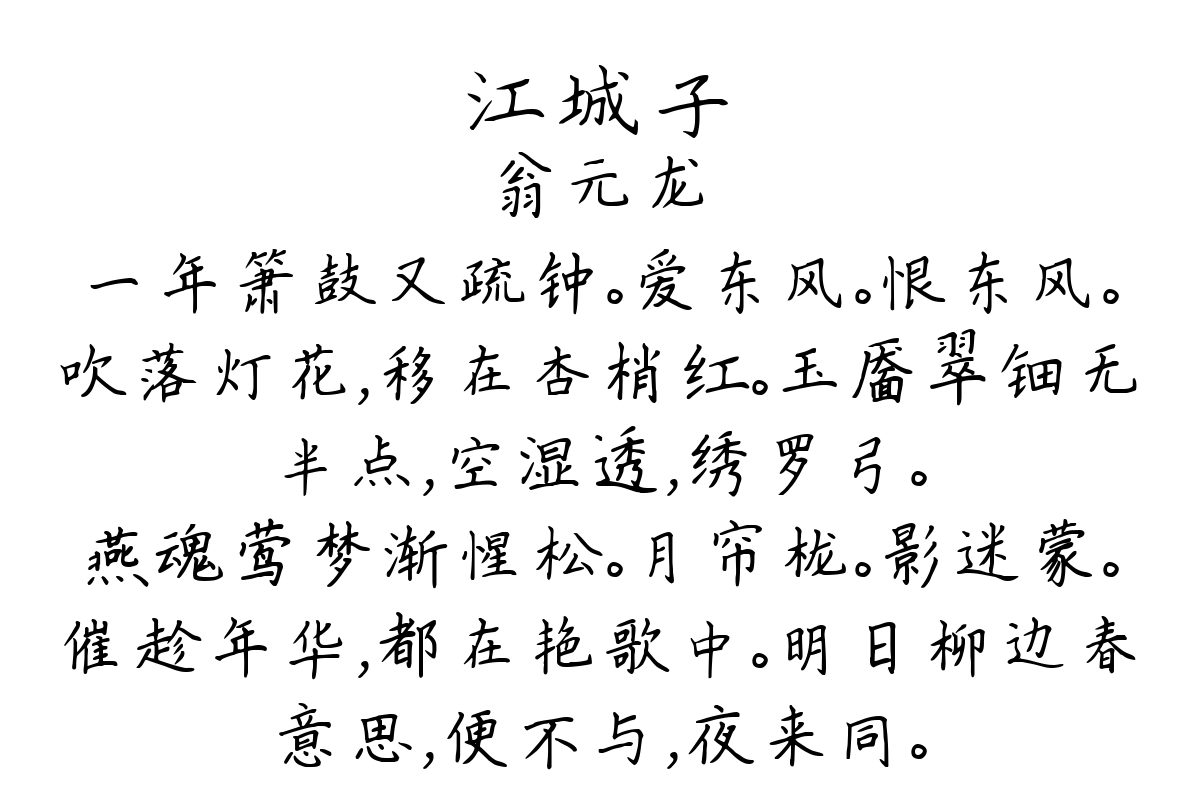 江城子
翁元龙
一年箫鼓又疏钟。爱东风。恨东风。
吹落灯花,移在杏梢红。玉靥翠钿无
半点,空湿透,绣罗弓。
燕魂莺梦渐惺松。月帘栊。影迷蒙。
催趁年华,都在艳歌中。明日柳边春
意思,便不与,夜来同。